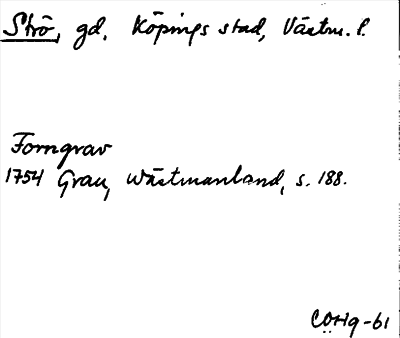 Strö, gd. Köpings stad, Västm. l.
Forngrav
1754 Grau, Wästmanland, s. 188.
COHq-61